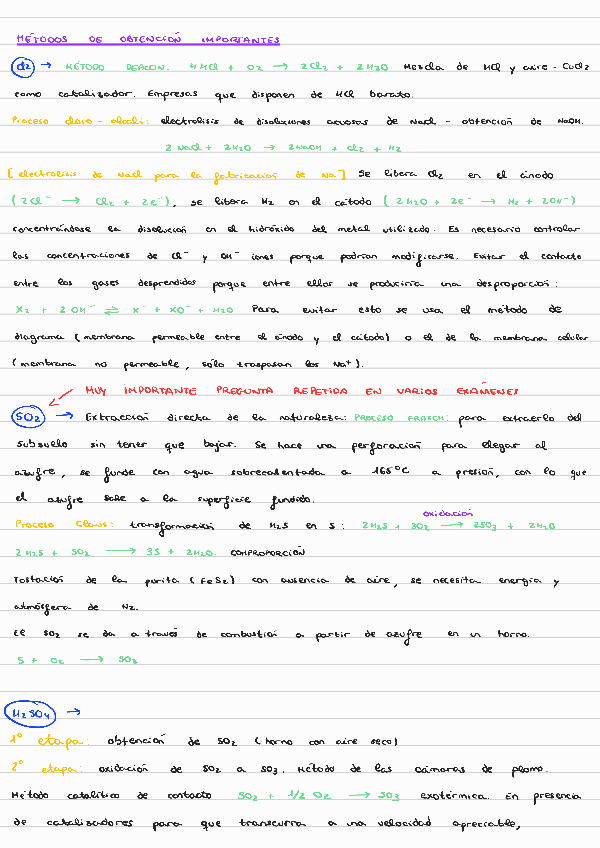 MÉTODOS DE OBTENCIÓN IMPORTANTES
Cl2 → MÉTODO DEACON. 4HCl + O2 → 2Cl2 + 2H2O Mezcla de HCl y aire - CuCl2
como catalizador. Empresas que disponen de HCl barato.
Proceso cloro-alcali: electrolisis de disoluciones acuosas de NaCl - obtención de NaOH.
2 NaCl + 2H2O → 2NaOH + Cl2 + H2
[electrolisis de NaCl para la fabricación de Na] Se libera Cl2 en el ánodo
(2Cl⁻ → Cl2 + 2e⁻), se libera H2 en el cátodo (2H2O + 2e⁻ → H2 + 2OH⁻)
concentrándose la disolución en el hidróxido del metal utilizado. Es necesario controlar
las concentraciones de Cl⁻ y OH⁻ iones porque podrían modificarse. Evitar el contacto
entre los gases desprendidos porque entre ellos se produciría una desproporción:
X2 + 2OH⁻ ⇌ X⁻ + XO⁻ + H2O Para evitar esto se usa el método de
diagrama (membrana permeable entre el ánodo y el cátodo) o el de la membrana celular
(membrana no permeable, sólo traspasan los Na⁺).
MUY IMPORTANTE PREGUNTA REPETIDA EN VARIOS EXÁMENES
SO2 → Extracción directa de la naturaleza: PROCESO FRASCH: para extraerlo del
subsuelo sin tener que bajar. Se hace una perforación para llegar al
azufre, se funde con agua sobrecalentada a 165°C a presión, con lo que
el azufre sale a la superficie fundido.
oxidación
Proceso Claus: transformación de H2S en S: 2H2S + 3O2 → 2SO2 + 2H2O
2H2S + SO2 → 3S + 2H2O. COMPROPORCIÓN
Tostación de la pirita (FeS2) con ausencia de aire, se necesita energía y
atmósfera de N2.
El SO2 se da a través de combustión a partir de azufre en un horno.
S + O2 → SO2
H2SO4 →
1° etapa: obtención de SO2 (horno con aire seco)
2° etapa: oxidación de SO2 a SO3. Método de las cámaras de plomo.
Método catalítico de contacto SO2 + 1/2 O2 → SO3 exotérmica. En presencia
de catalizadores para que transcurra a una velocidad apreciable,